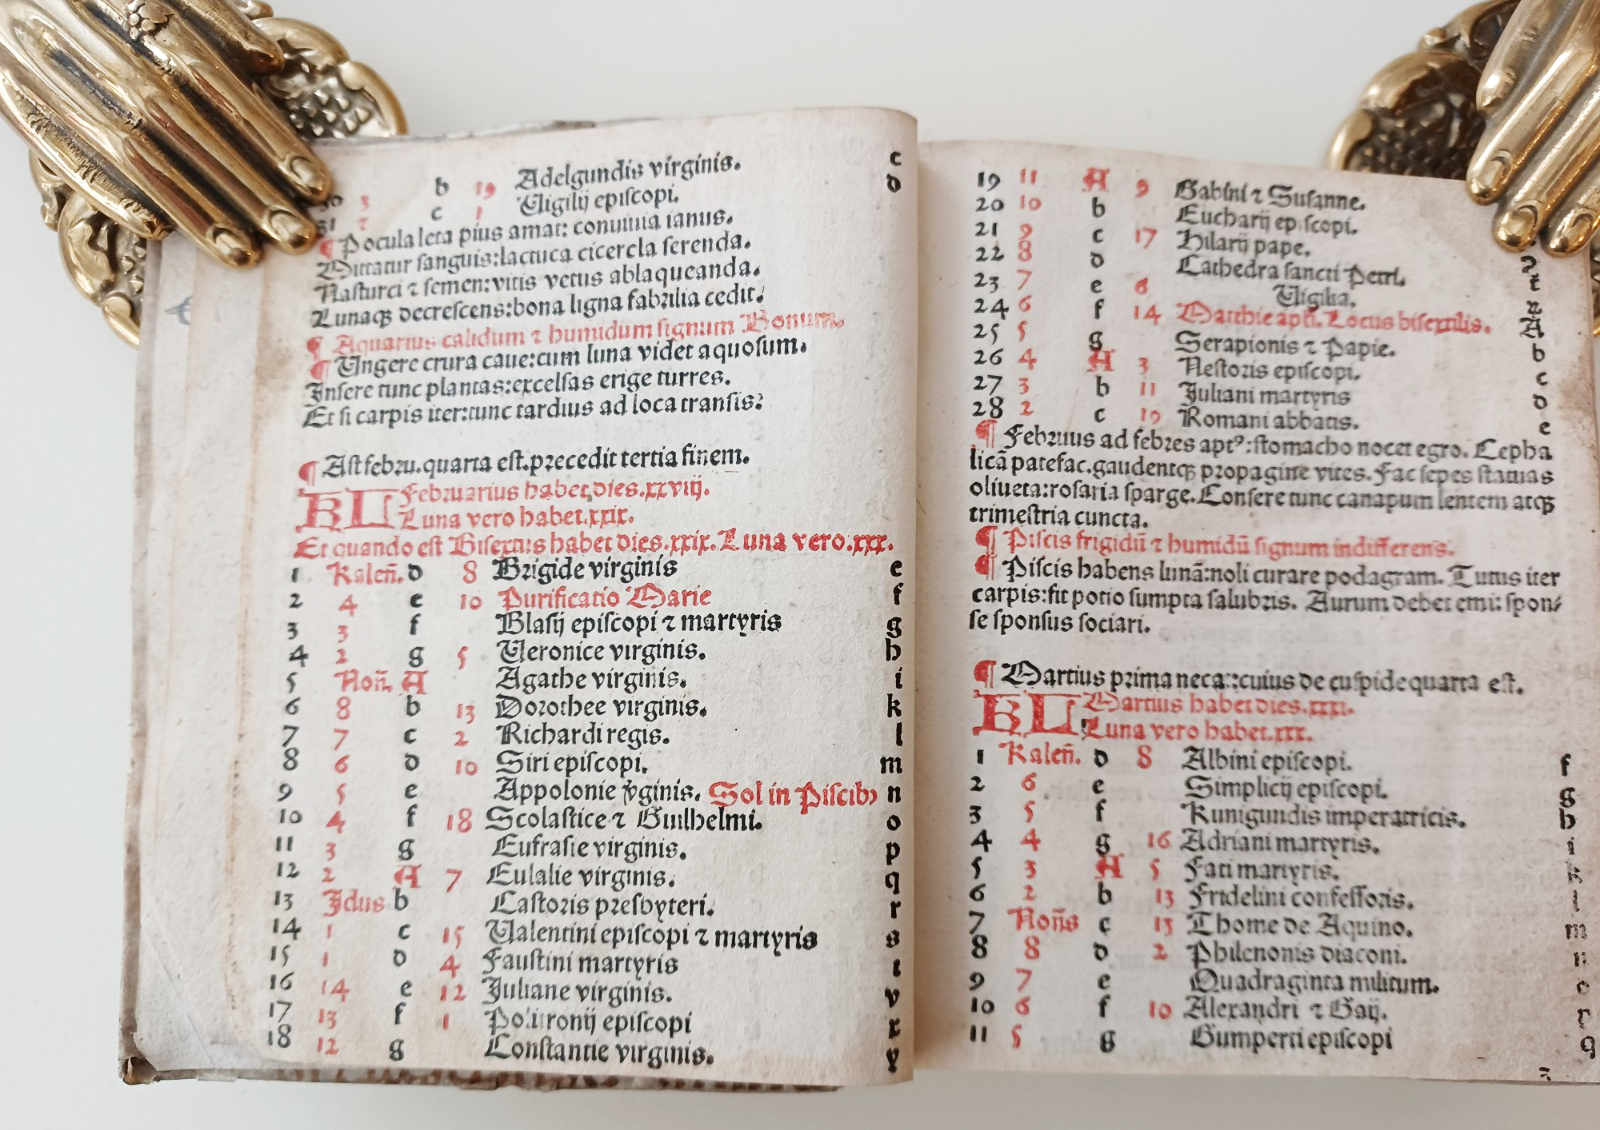 30 3 b 19 Adelgundis virginis. c
31 2 c 1 Uigilij episcopi. d
¶ Pocula leta pius amat: conuiuia ianus.
Mittatur sanguis:lactuca cicercla serenda.
Nasturci ⁊ semen:vitis vetus ablaqueanda.
Lunaqꝫ decrescens:bona ligna fabrilia cedit.
¶ Aquarius calidum ⁊ humidum signum Bonum.
¶ Ungere crura caue:cum luna videt aquosum.
Insere tunc plantas:excelsas erige turres.
Et si carpis iter:tunc tardius ad loca transis.
¶ Ast febru.quarta est.precedit tertia finem.
KL Februarius habet dies.xxviij.
Luna vero habet.xxix.
Et quando est Bisextus habet dies.xxix.Luna vero.xxx.
1 Kaleñ. d 8 Brigide virginis e
2 4 e 10 Purificatio Marie f
3 3 f Blasij episcopi ⁊ martyris g
4 2 g 5 Ueronice virginis. h
5 Noñ. A Agathe virginis. i
6 8 b 13 Dorothee virginis. k
7 7 c 2 Richardi regis. l
8 6 d 10 Siri episcopi. m
9 5 e Appolonie v̄ginis. Sol in Piscibꝰ n
10 4 f 18 Scolastice ⁊ Guilhelmi. o
11 3 g Eufrasie virginis. p
12 2 A 7 Eulalie virginis. q
13 Idus b Castoris presbyteri. r
14 1 c 15 Ualentini episcopi ⁊ martyris s
15 1 d 4 Faustini martyris t
16 14 e 12 Juliane virginis. v
17 13 f 1 Policronij episcopi x
18 12 g Constantie virginis. y
19 11 A 9 Gabini ⁊ Susanne.
20 10 b Eucharij episcopi.
21 9 c 17 Hilarij pape.
22 8 d Cathedra sancti Petri. ꝛ
23 7 e 6 Uigilia. t
24 6 f 14 Matthie apłi. Locus bisextilis. A
25 5 g Serapionis ⁊ Papie. b
26 4 A 3 Nestoris episcopi. c
27 3 b 11 Juliani martyris d
28 2 c 19 Romani abbatis. e
¶ Februus ad febres aptꝰ:stomacho nocet egro. Cepha
licā patefac.gaudentqꝫ propagine vites. Fac sepes statuas
oliueta:rosaria sparge.Consere tunc canapum lentem atqꝫ
trimestria cuncta.
¶ Piscis frigidū ⁊ humidū signum indifferens.
¶ Piscis habens lunā:noli curare podagram. Tutus iter
carpis:fit potio sumpta salubris. Aurum debet emi: spon⸗
se sponsus sociari.
¶ Martius prima necat:cuius de cuspide quarta est.
KL Martius habet dies.xxxi.
Luna vero habet.xxx.
1 Kaleñ. d 8 Albini episcopi. f
2 6 e Simplicij episcopi. g
3 5 f Kunigundis imperatricis. h
4 4 g 16 Adriani martyris. i
5 3 A 5 Fati martyris. k
6 2 b 13 Fridelini confessoris. l
7 Noñs c 13 Thome de Aquino. m
8 8 d 2 Philenonis diaconi. n
9 7 e Quadraginta militum. o
10 6 f 10 Alexandri ⁊ Gaij. p
11 5 g Gumperti episcopi q